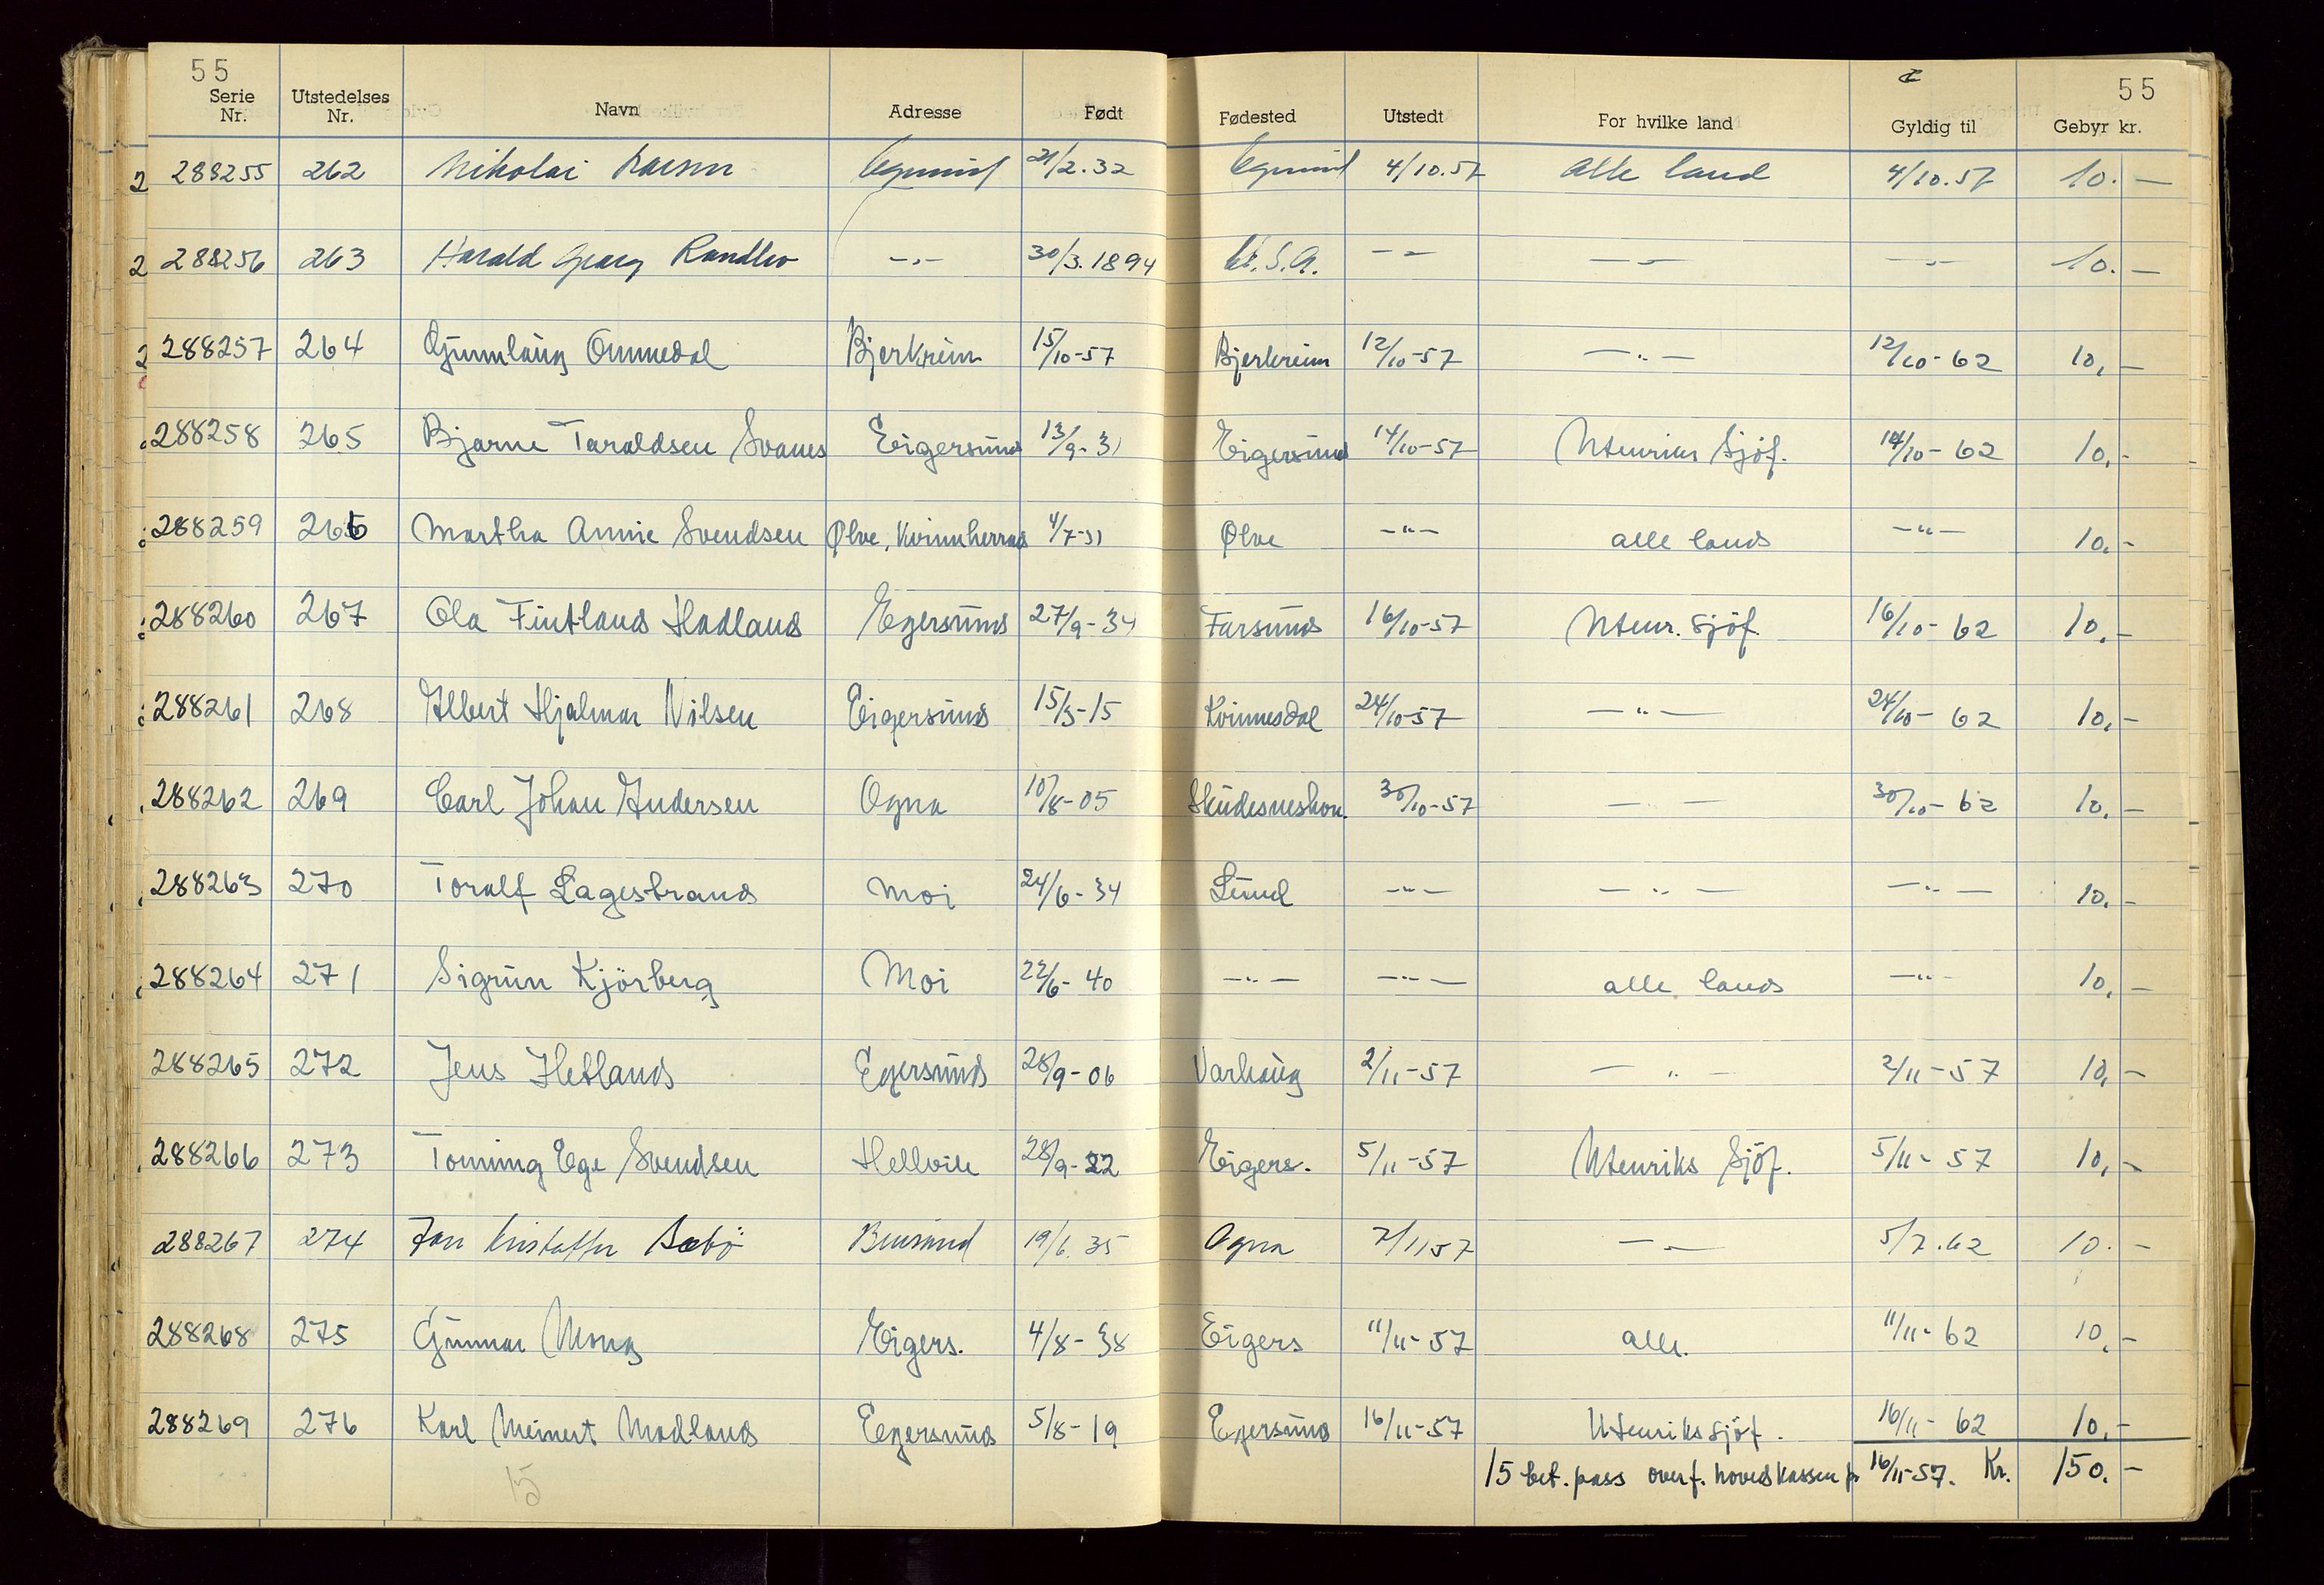 55
55
Serie Nr. Utstedelses Nr. Navn Adresse Født Fødested Utstedt For hvilke land Gyldig til Gebyr kr.
288255 262 Nikolai 21/2.32 4/10.57 alle land 4/10.57 10.-
288256 263 Harald Georg Randlev -"- 30/3.1894 U.S.A. -"- -"- -"- 10.-
288257 264 Gunnlaug Ommedal Bjerkreim 15/10-57 Bjerkreim 12/10-57 -"- 12/10-62 10,-
288258 265 Bjarne Taraldsen Svanes Eigersund 13/9-31 Eigersund 14/10-57 Utenriks Sjöf. 14/10-62 10,-
288259 266 Martha Annie Svendsen Ølve, Kvinnherrad 4/7-31 Ølve -"- alle land -"- 10,-
288260 267 Ola Fintland Hadland Egersund 27/9-34 Farsund 16/10-57 Utenr. Sjöf. 16/10-62 10,-
288261 268 Albert Hjalmar Nilsen Eigersund 15/3-15 Kvinnesdal 24/10-57 -"- 24/10-62 10,-
288262 269 Carl Johan Andersen Ogna 10/8-05 Skudesneshavn. 30/10-57 - - 30/10-62 10,-
288263 270 Toralf Lagestrand Moi 24/6-34 Lund -"- -"- -"- 10,-
288264 271 Sigrun Kjörberg Moi 22/6-40 -"- -"- alle land -"- 10,-
288265 272 Jens Hetland Egersund 28/9-06 Varhaug 2/11-57 -"- 2/11-57 10,-
288266 273 Tonning Ege Svendsen Hellvik 28/9-22 Eigers. 5/11-57 Utenriks Sjöf. 5/11-57 10,-
288267 274 Jan Kristoffer Bøbö Brusand 19/6.35 Ogna 7/11 57 -"- 5/7.62 10.-
288268 275 Gunnar Mong Eigers. 4/8-38 Eigers 11/11-57 alle. 11/11-62 10,-
288269 276 Karl Meinert Madland Egersund 5/8-19 Egersund 16/11-57 Utenriks sjöf. 16/11-62 10,-
15 15 bet. pass overf. hovedkassen pr 16/11-57. Kr. 150.-